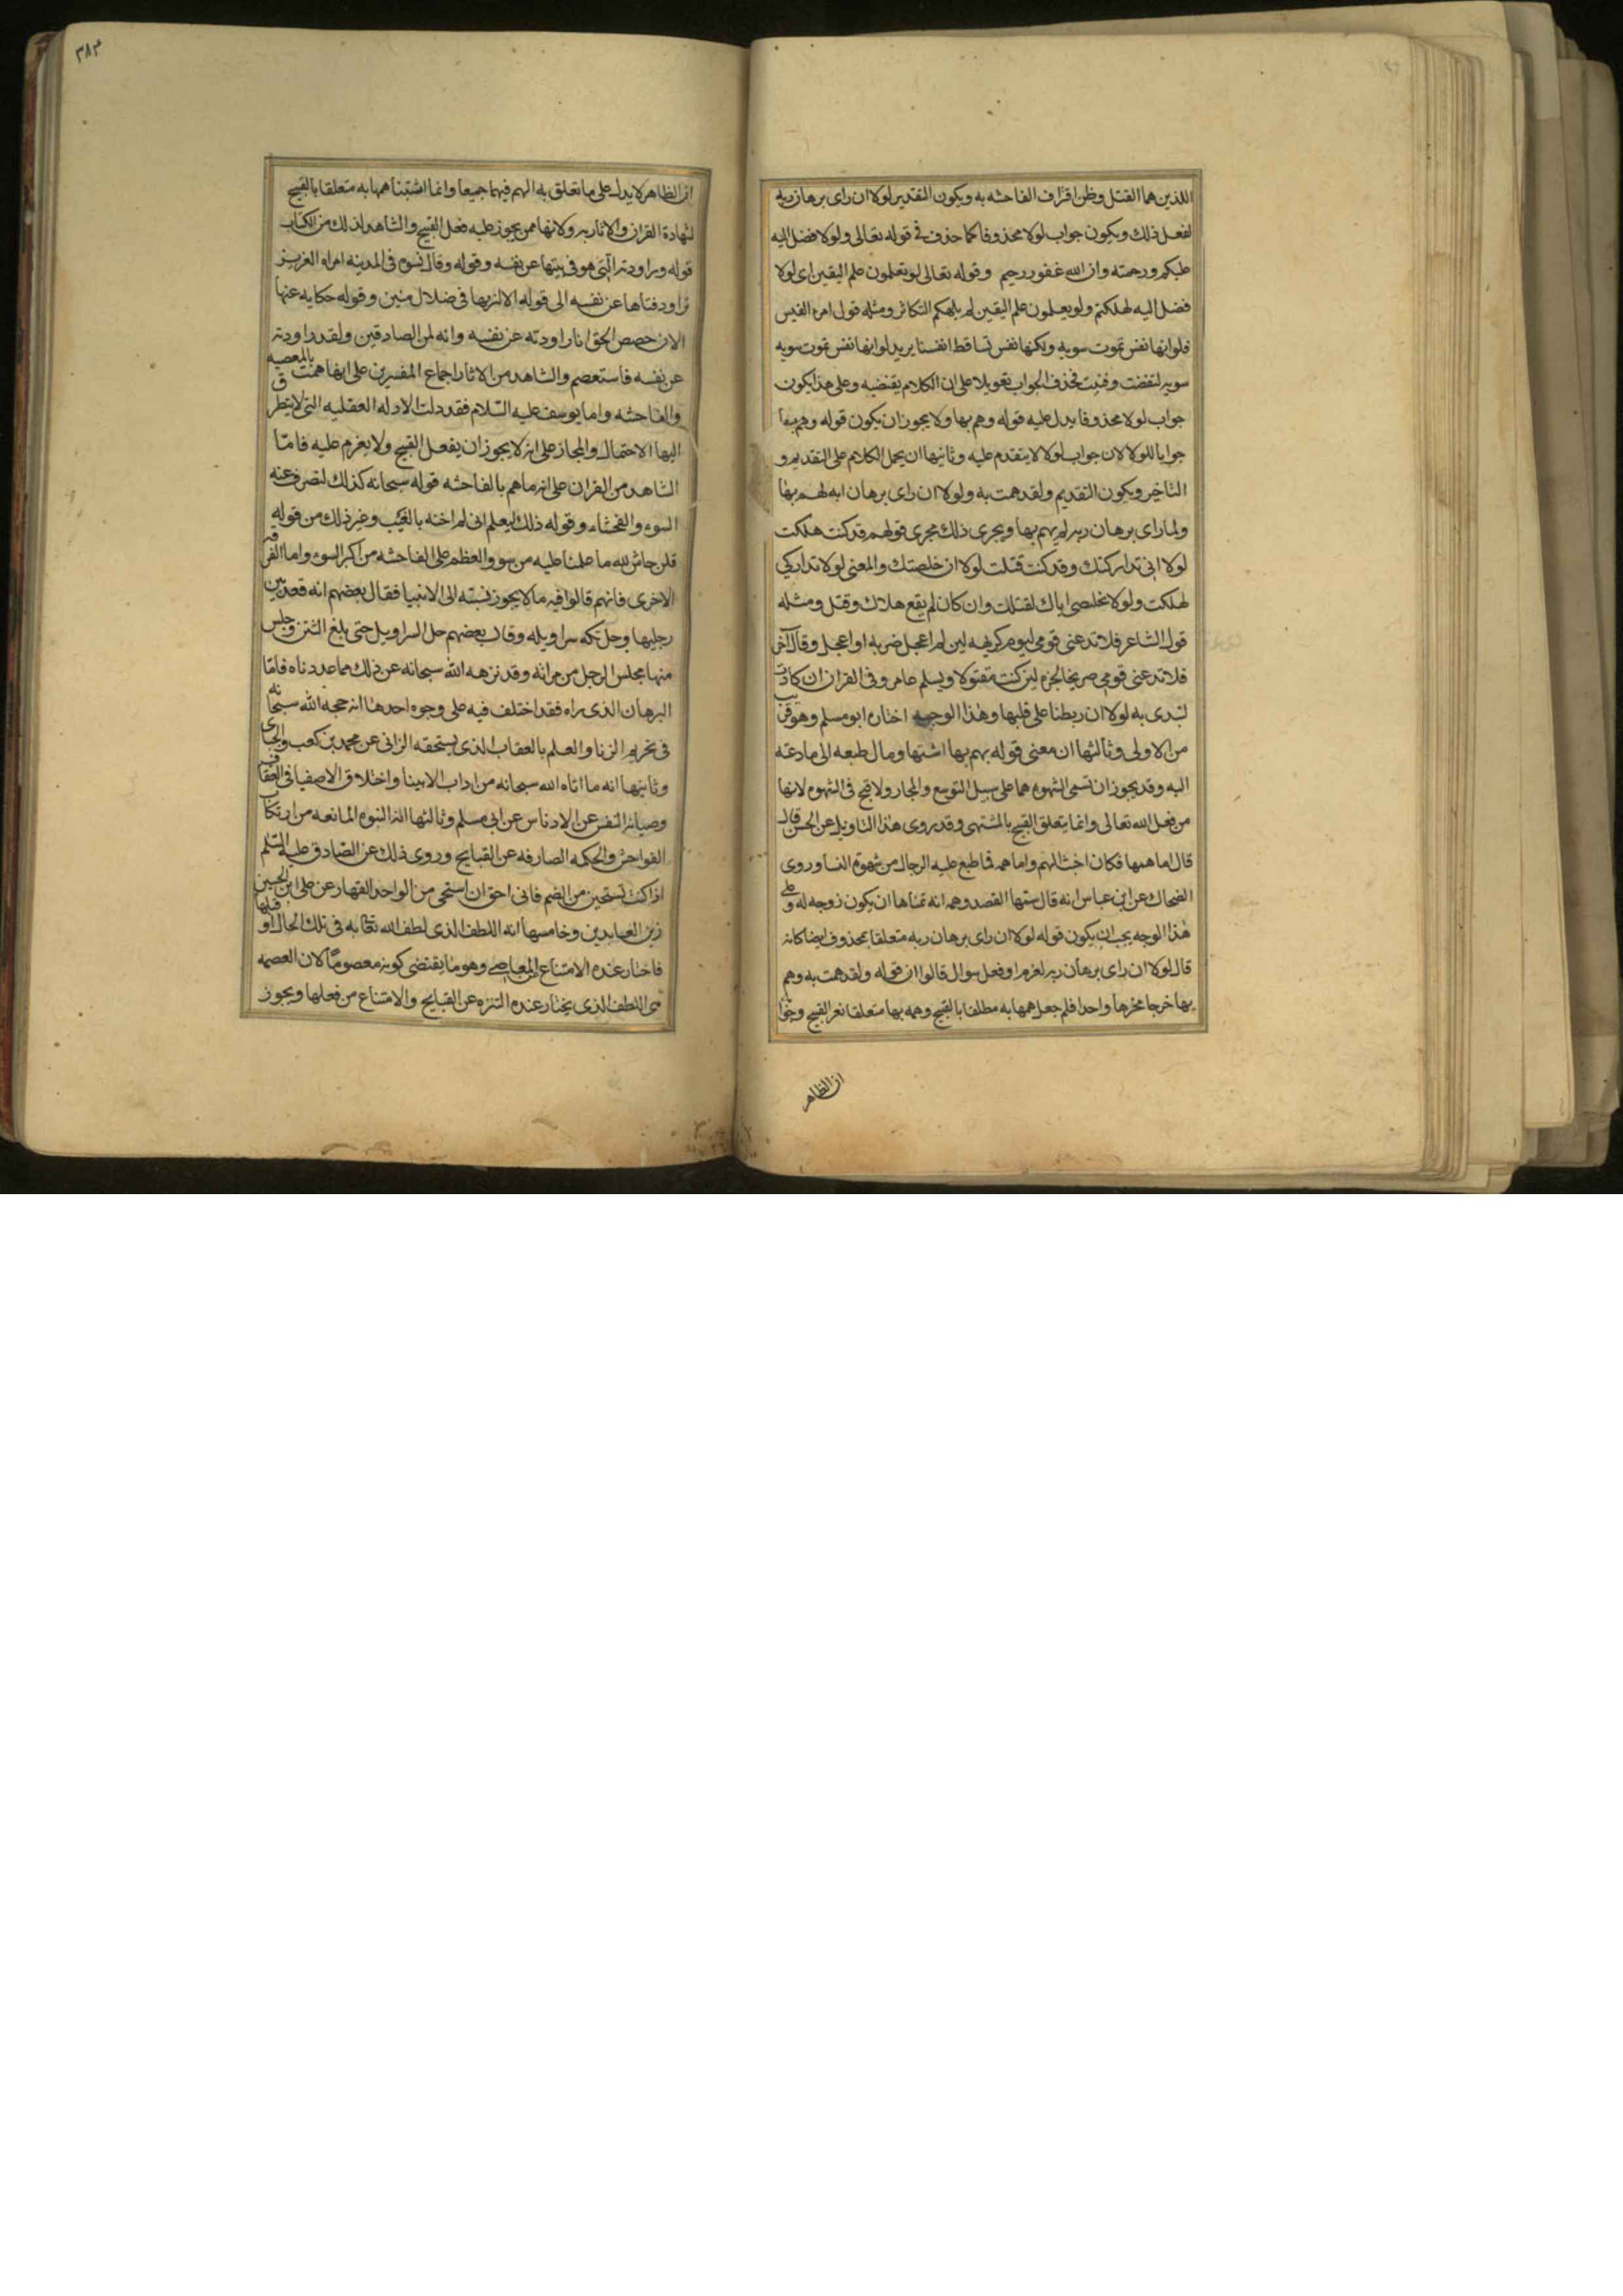 اللذين هما القتل وظن اقتراف الفاحشه به ويكون التقدير لولا ان راى برهان ربه
لفعل ذلك ويكون جواب لولا محذوفا كما حذف فى قوله تعالى ولولا فضل اليه
عليكم ورحمته وان الله غفور رحيم وقوله تعالى لو تعلمون علم اليقين اى لولا
فضل اليه لهلكتم ولو يعلمون علم اليقين لم يلهكم التكاثر ومثله قول امرء القيس
فلو انها نفس تموت سويه ولكنها نفس تساقط انفسنا يريد لو انها نفس تموت سويه
سويه لنفضت وفنيت فحذف الجواب تعويلا على ان الكلام يقتضيه وعلى هذا يكون
جواب لولا محذوفا يدل عليه قوله وهم بها ولا يجوز ان يكون قوله وهم بها
جوابا للولا لان جواب لولا لا يتقدم عليه وثانيها ان يحمل الكلام على التقديم و
التاخير ويكون التقديم ولقد همت به ولولا ان راى برهان ابه لهم بها
ولما راى برهان ربه لم يهم بها ويجرى ذلك مجرى قولهم قد كنت هلكت
لولا انى تداركتك وقد كنت قتلت لولا ان خلصتك والمعنى لولا تداركى
لهلكت ولولا تخلصى اياك لقتلت وان كان لم يقع هلاك وقتل ومثله
قول الشاعر فلا تدعنى قومى ليوم كريهه لين لم اعجل ضربه او اعجل وقال آخر
فلا تدعنى قومى صريخا لحره لين كنت مقتولا ويسلم عامر وفى القران ان كادت
لتبدى به لولا ان ربطنا على قلبها وهذا الوجه اختاره ابو مسلم وهو قريب
من الاولى وثالثها ان معنى قوله بهم بها اشتهاها ومال طبعه الى ما دعته
اليه وقد يجوز ان تسمى الشهوه هما على سبيل التوسع والمجار ولا قبح فى الشهوه لانها
من فعل الله تعالى وانما يتعلق القبح بالمشتهى وقد روى هذا التاويل عن الحسن قال
قال اما همها فكان اخبث الهم واما همه فما طبع عليه الرجال من شهوه النسا وروى
الضحاك عن ابن عباس انه قال ... القصد وهمه انه تمناها ان يكون زوجه له وعلى
هذا الوجه يجب ان يكون قوله لولا ان راى برهان ربه متعلقا بمحذوف ايضا كانه
قال لولا ان راى برهان ربه لعزم او فعل سوال قالوا ان قوله ولقد همت به وهم
بها خرجا مخرجا واحدا فلم جعل همها به مطلقا بالقبيح وهمه بها متعلقا بغر القبيح وجوا
ان الظاهر
٣٨٣
ان الظاهر لا يدل على ما تعلق به الهم فيهما جميعا وانما اثبتنا همها به متعلقا بالقبيح
لشهادة القران والاثار به ولانها ممن يجوز عليه فعل القبيح والشاهد لذلك من الكتاب
قوله وراودته التى هو فى بيتها عن نفسه وقوله وقال نسوه فى المدينه امراه العزيز
تراود فتاها عن نفسه الى قوله الا لنريها فى ضلال مبين وقوله حكايه عنها
الان حصص الحق انا راودته عن نفسه وانه لمن الصادقين ولقد راودته
عن نفسه فاستعصم والشاهد من الاثار اجماع المفسرين على انها همت بالمعصيه
والفاحشه واما يوسف عليه السلام فقد دلت الادله العقليه التى لا يتطرق
اليها الاحتمال والمجاز على انه لا يجوز ان يفعل القبيح ولا يعزم عليه فامّا
الشاهد من القران على انه ما هم بالفاحشه قوله سبحانه كذلك لنصرف عنه
السوء والفحشاء وقوله ذلك ليعلم انى لم اخنه بالغيب وغير ذلك من قوله
قلن حاش لله ما علمنا عليه من سوء والعظم على الفاحشه من اكبر السوء واما الفرقه
الاخرى فانهم قالوا فيه ما لا يجوز نسبته الى الانبيا فقال بعضهم انه قعد بين
رجليها وحل تكه سراويله وقال بعضهم حل السراويل حتى بلغ الثنن وجلس
منها مجلس الرجل من مراته وقد نزهه الله سبحانه عن ذلك مما عددناه فامّا
البرهان الذى راه فقد اختلف فيه على وجوه احدها انه حجه الله سبحانه
فى تحريم الزنا والعلم بالعقاب الذى يستحقه الزانى عن محمد بن كعب والجباى
وثانيها انه ما اتاه الله سبحانه من اداب الانبيا واخلاق الاصفيا فى العفاف
وصيانه النفس عن الادناس عن ابى مسلم وثالثها انه النبوه المانعه من ارتكاب
الفواحش والحكمه الصارفه عن القبايح وروى ذلك عن الصادق عليه السلم
اذا كنت تستحين من الصنم فانى احق ان استحى من الواحد القهار عن على ابن الحسين
زين العابدين وخامسها انه اللطف الذى لطف الله تعالى به فى تلك الحال او قبلها
فاختار عنده الامتناع عن المعاصى وهو ما يقتضى كونه معصوما لان العصمه
هى اللطف الذى يختار عنده التنزه عن القبايح والامتناع من فعلها ويجوز